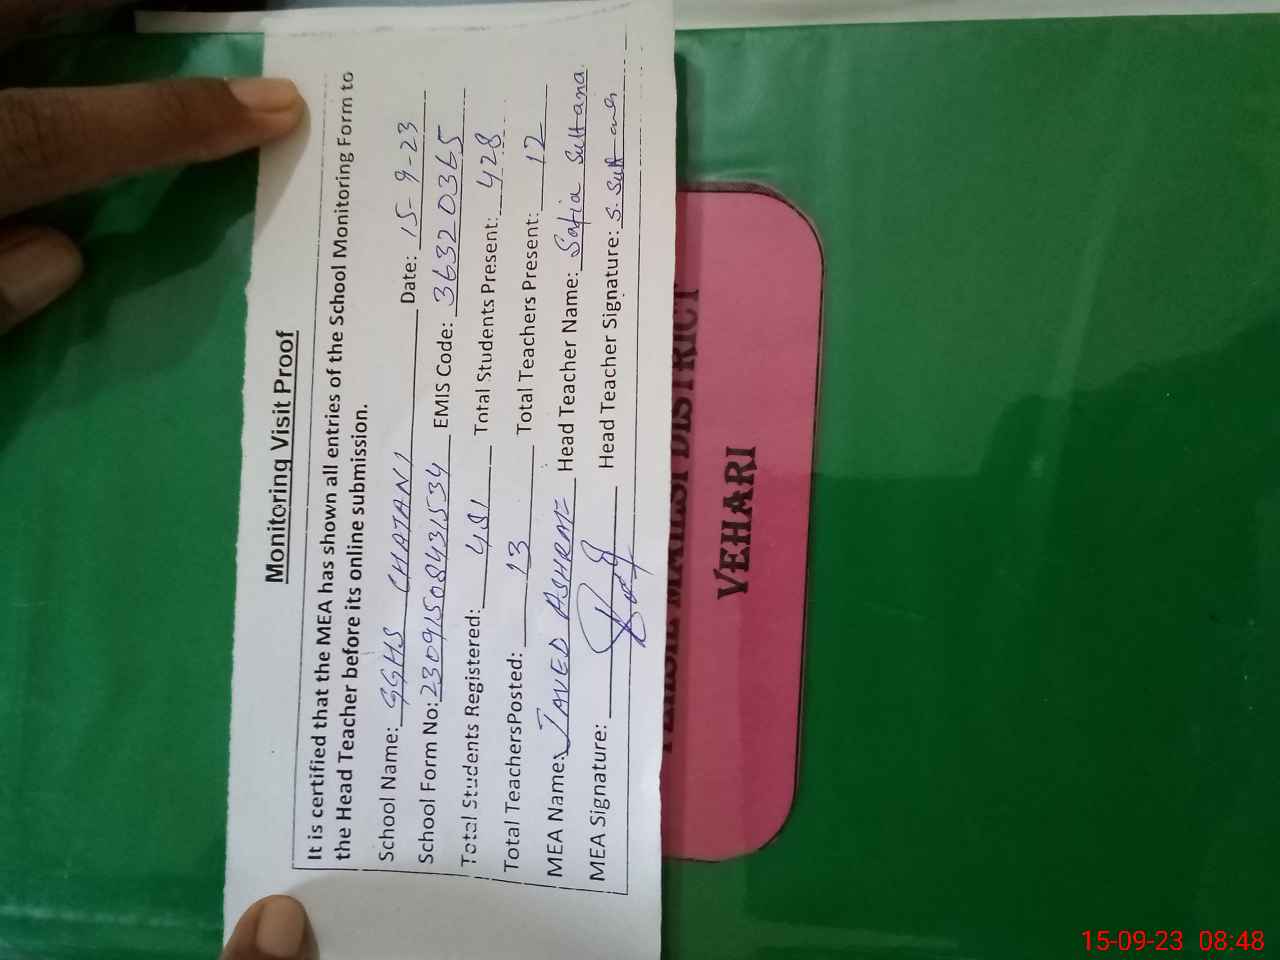 Monitoring Visit Proof
It is certified that the MEA has shown all entries of the School Monitoring Form to
the Head Teacher before its online submission.
School Name: GGHS CHATANI Date: 15-9-23
School Form No: 23091508431534 EMIS Code: 36320365
Total Students Registered: 481 Total Students Present: 428
Total TeachersPosted: 13 Total Teachers Present: 12
MEA Name: JAVED ASHRAF Head Teacher Name: Safia Sultana
MEA Signature: Head Teacher Signature: S. Sultana
MAILSI DISTRICT
VEHARI
15-09-23 08:48